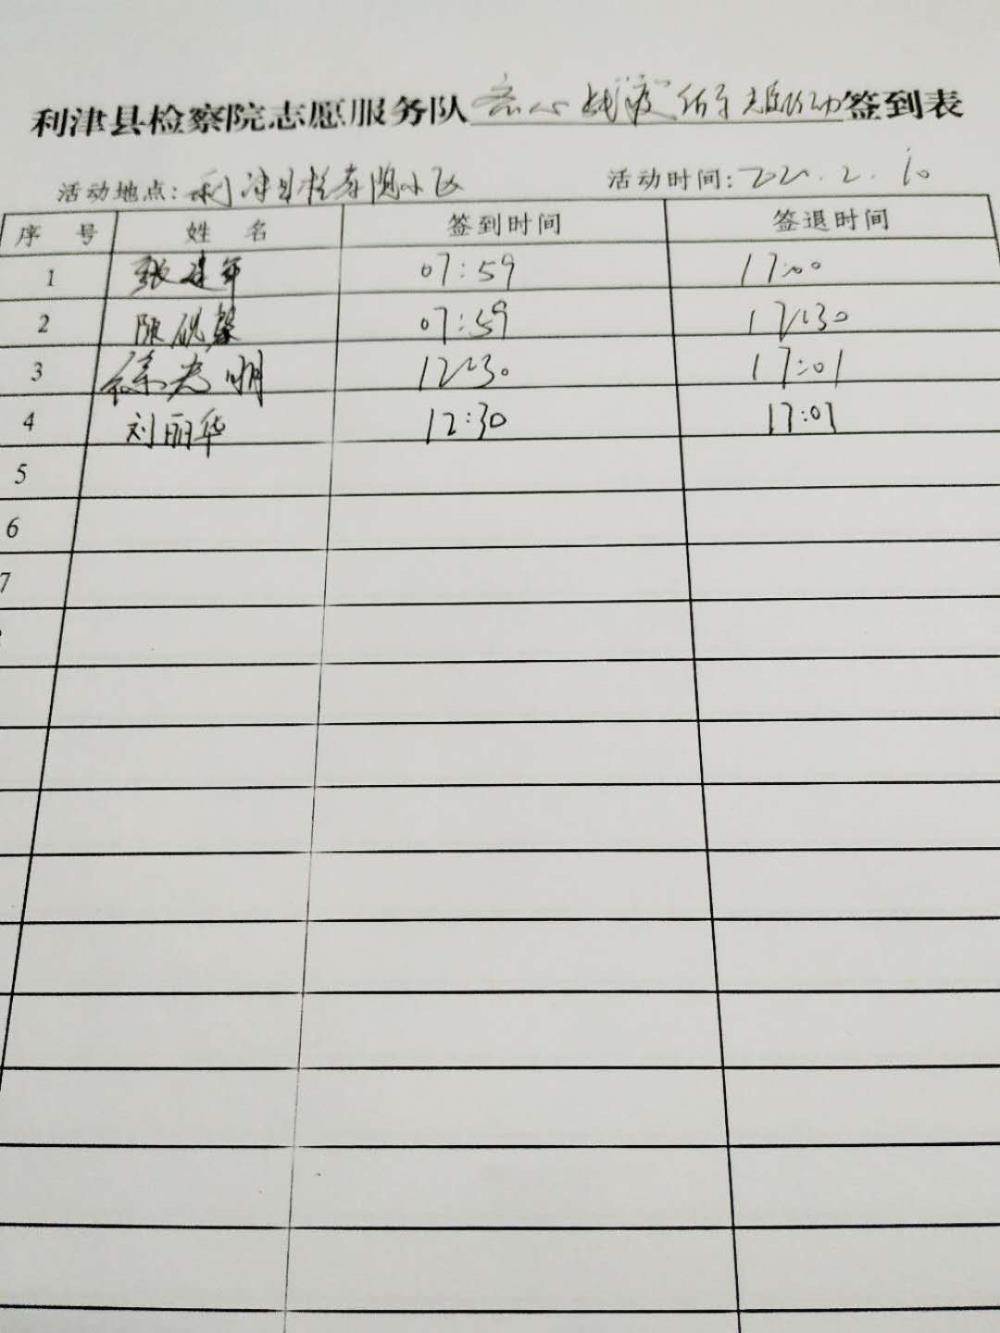 利津县检察院志愿服务队 齐心战"疫"你守我行动 签到表
活动地点: 利津县检察院小区 活动时间: 2020.2.10
序 号 姓 名 签到时间 签退时间
1 张建军 07:59 17:00
2 陈砚馨 07:59 17:30
3 徐光明 12:30 17:01
4 刘丽华 12:30 17:01
5
6
7